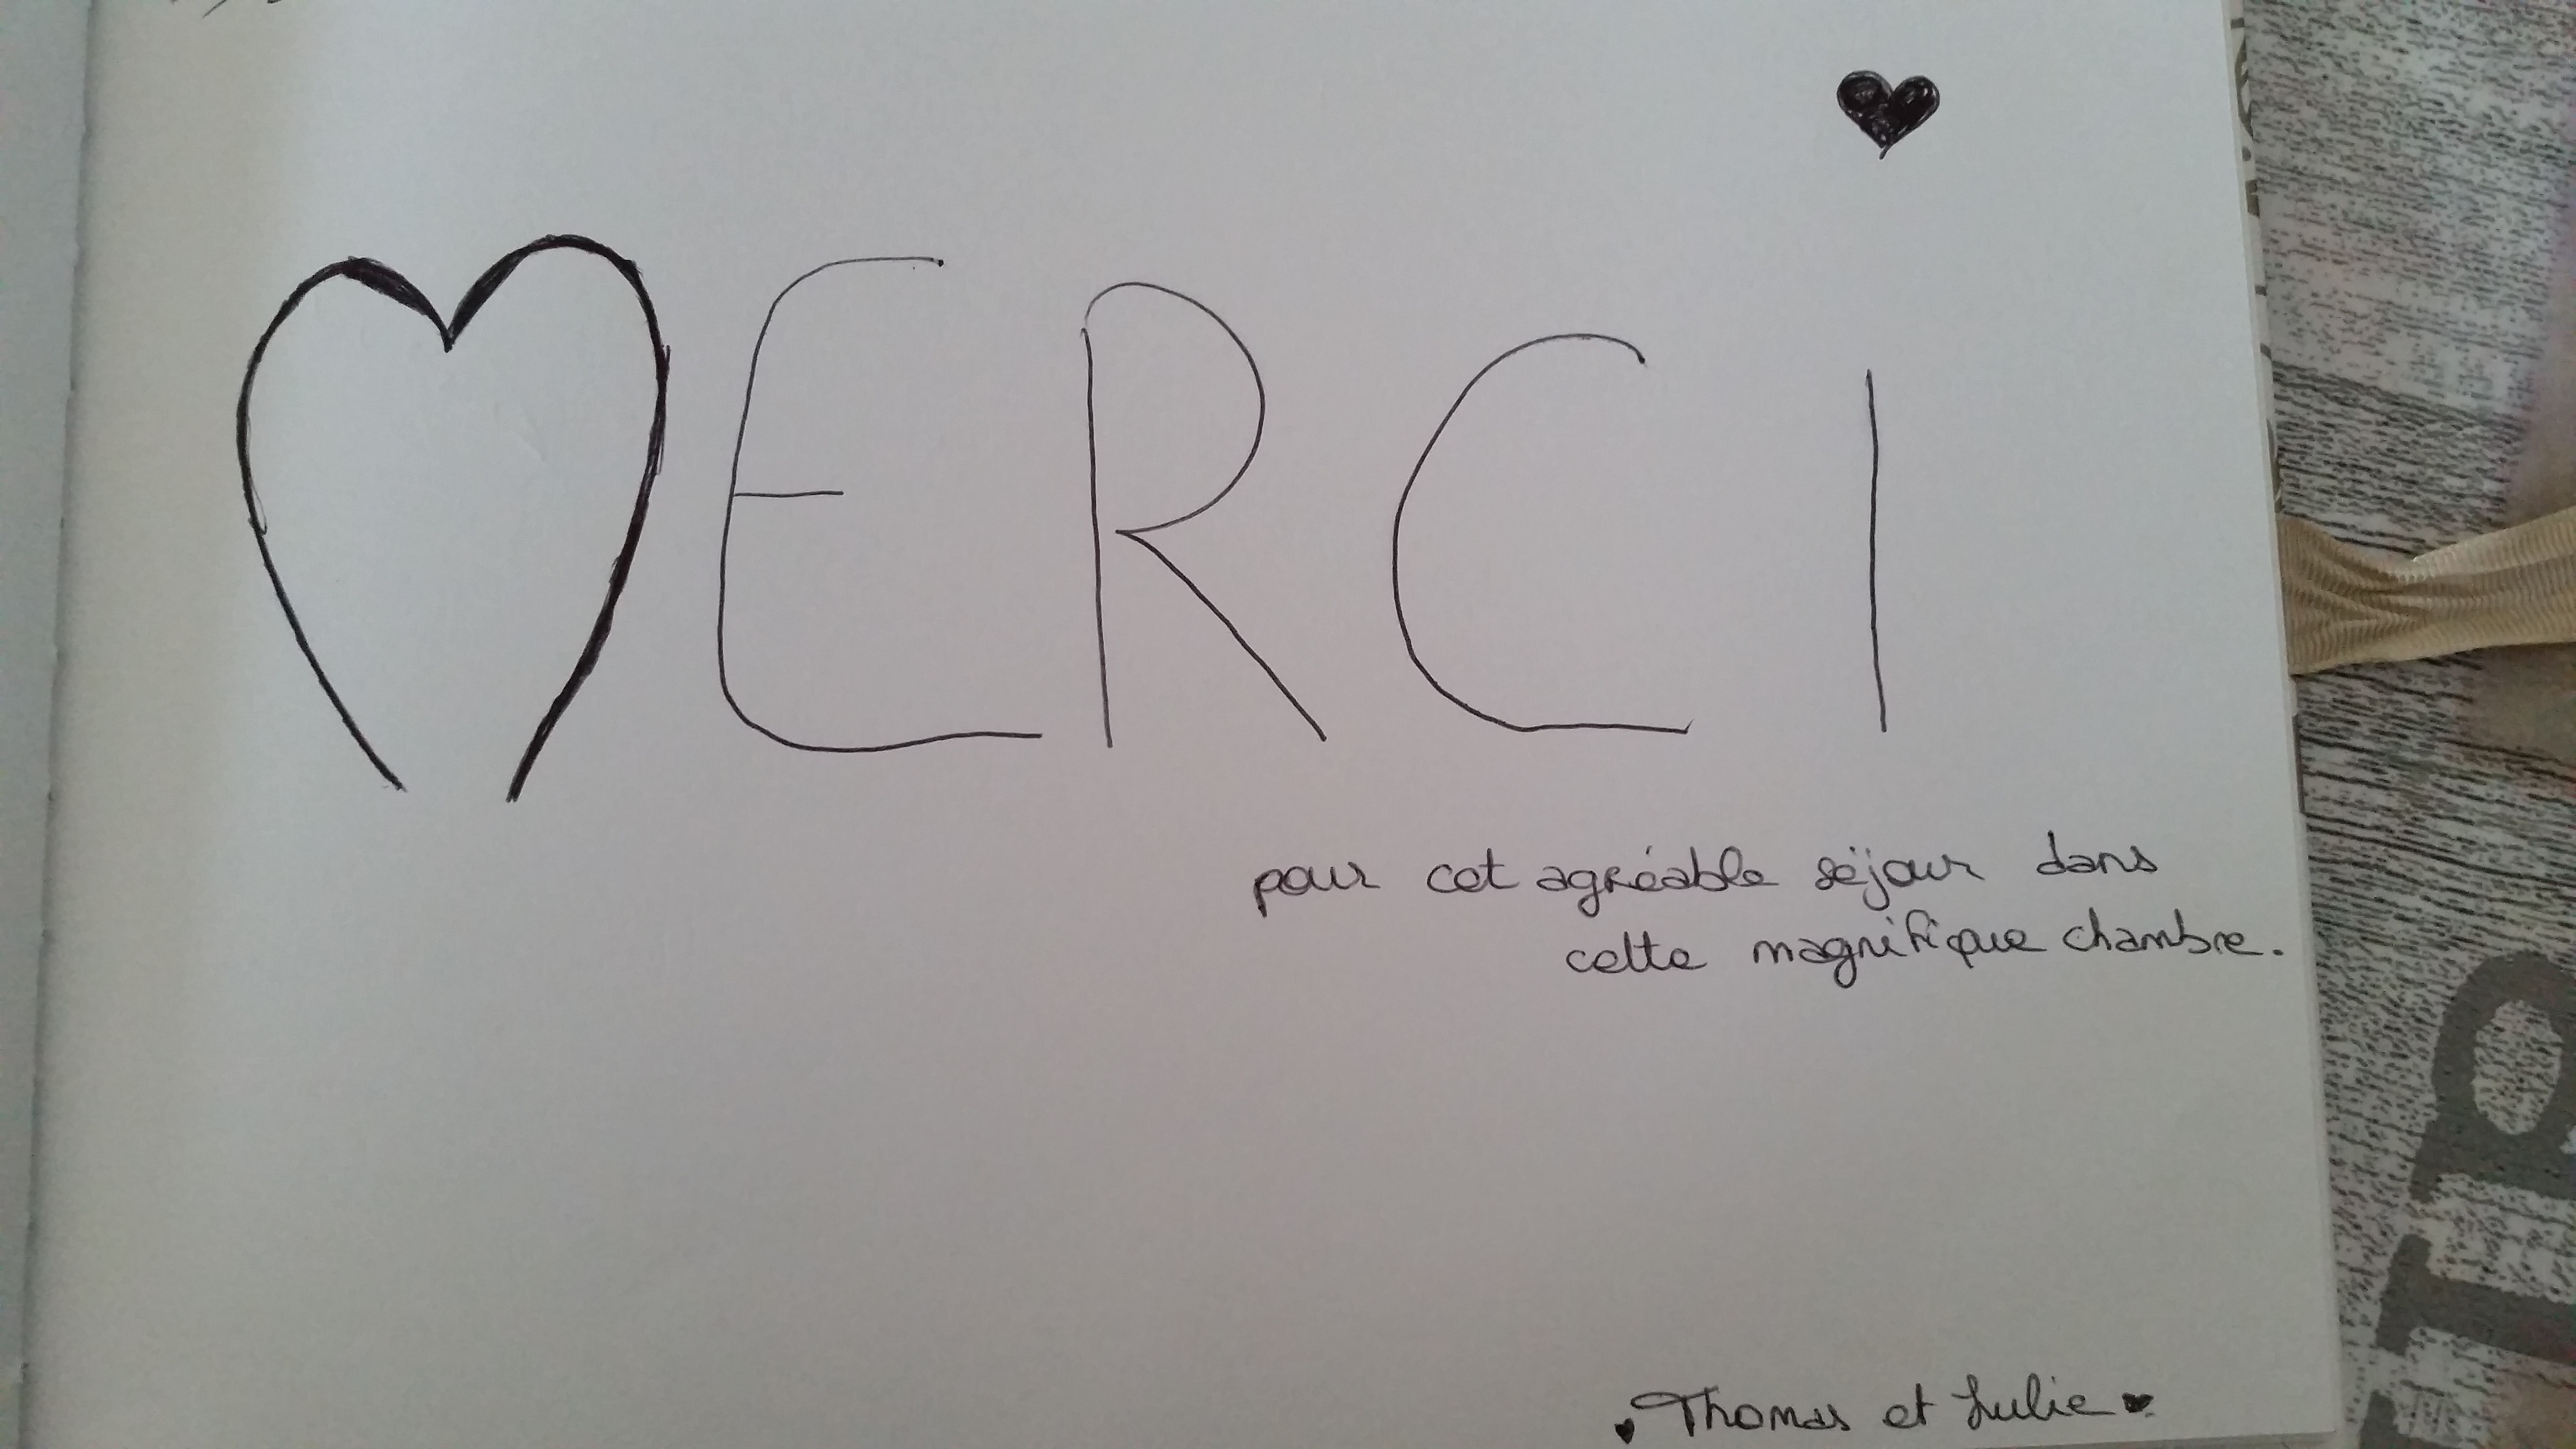 MERCI
pour cet agréable séjour dans
cette magnifique chambre.
Thomas et Julie